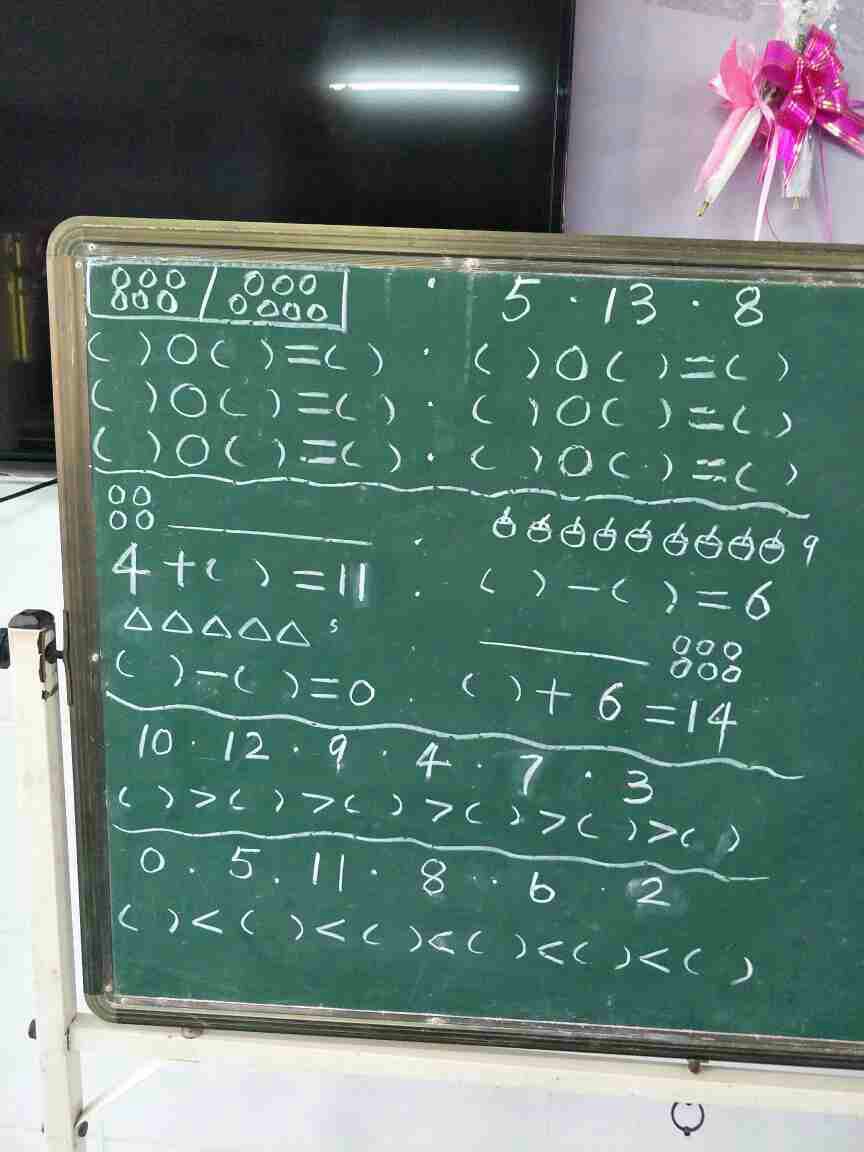 5 · 13 · 8
( )○( )=( ) · ( )○( )=( )
( )○( )=( ) · ( )○( )=( )
( )○( )=( ) · ( )○( )=( )
9
4+( )=11 · ( )-( )=6
5
( )-( )=0 · ( )+6=14
10 · 12 · 9 · 4 · 7 · 3
( )>( )>( )>( )>( )>( )
0 · 5 · 11 · 8 · 6 · 2
( )<( )<( )<( )<( )<( )